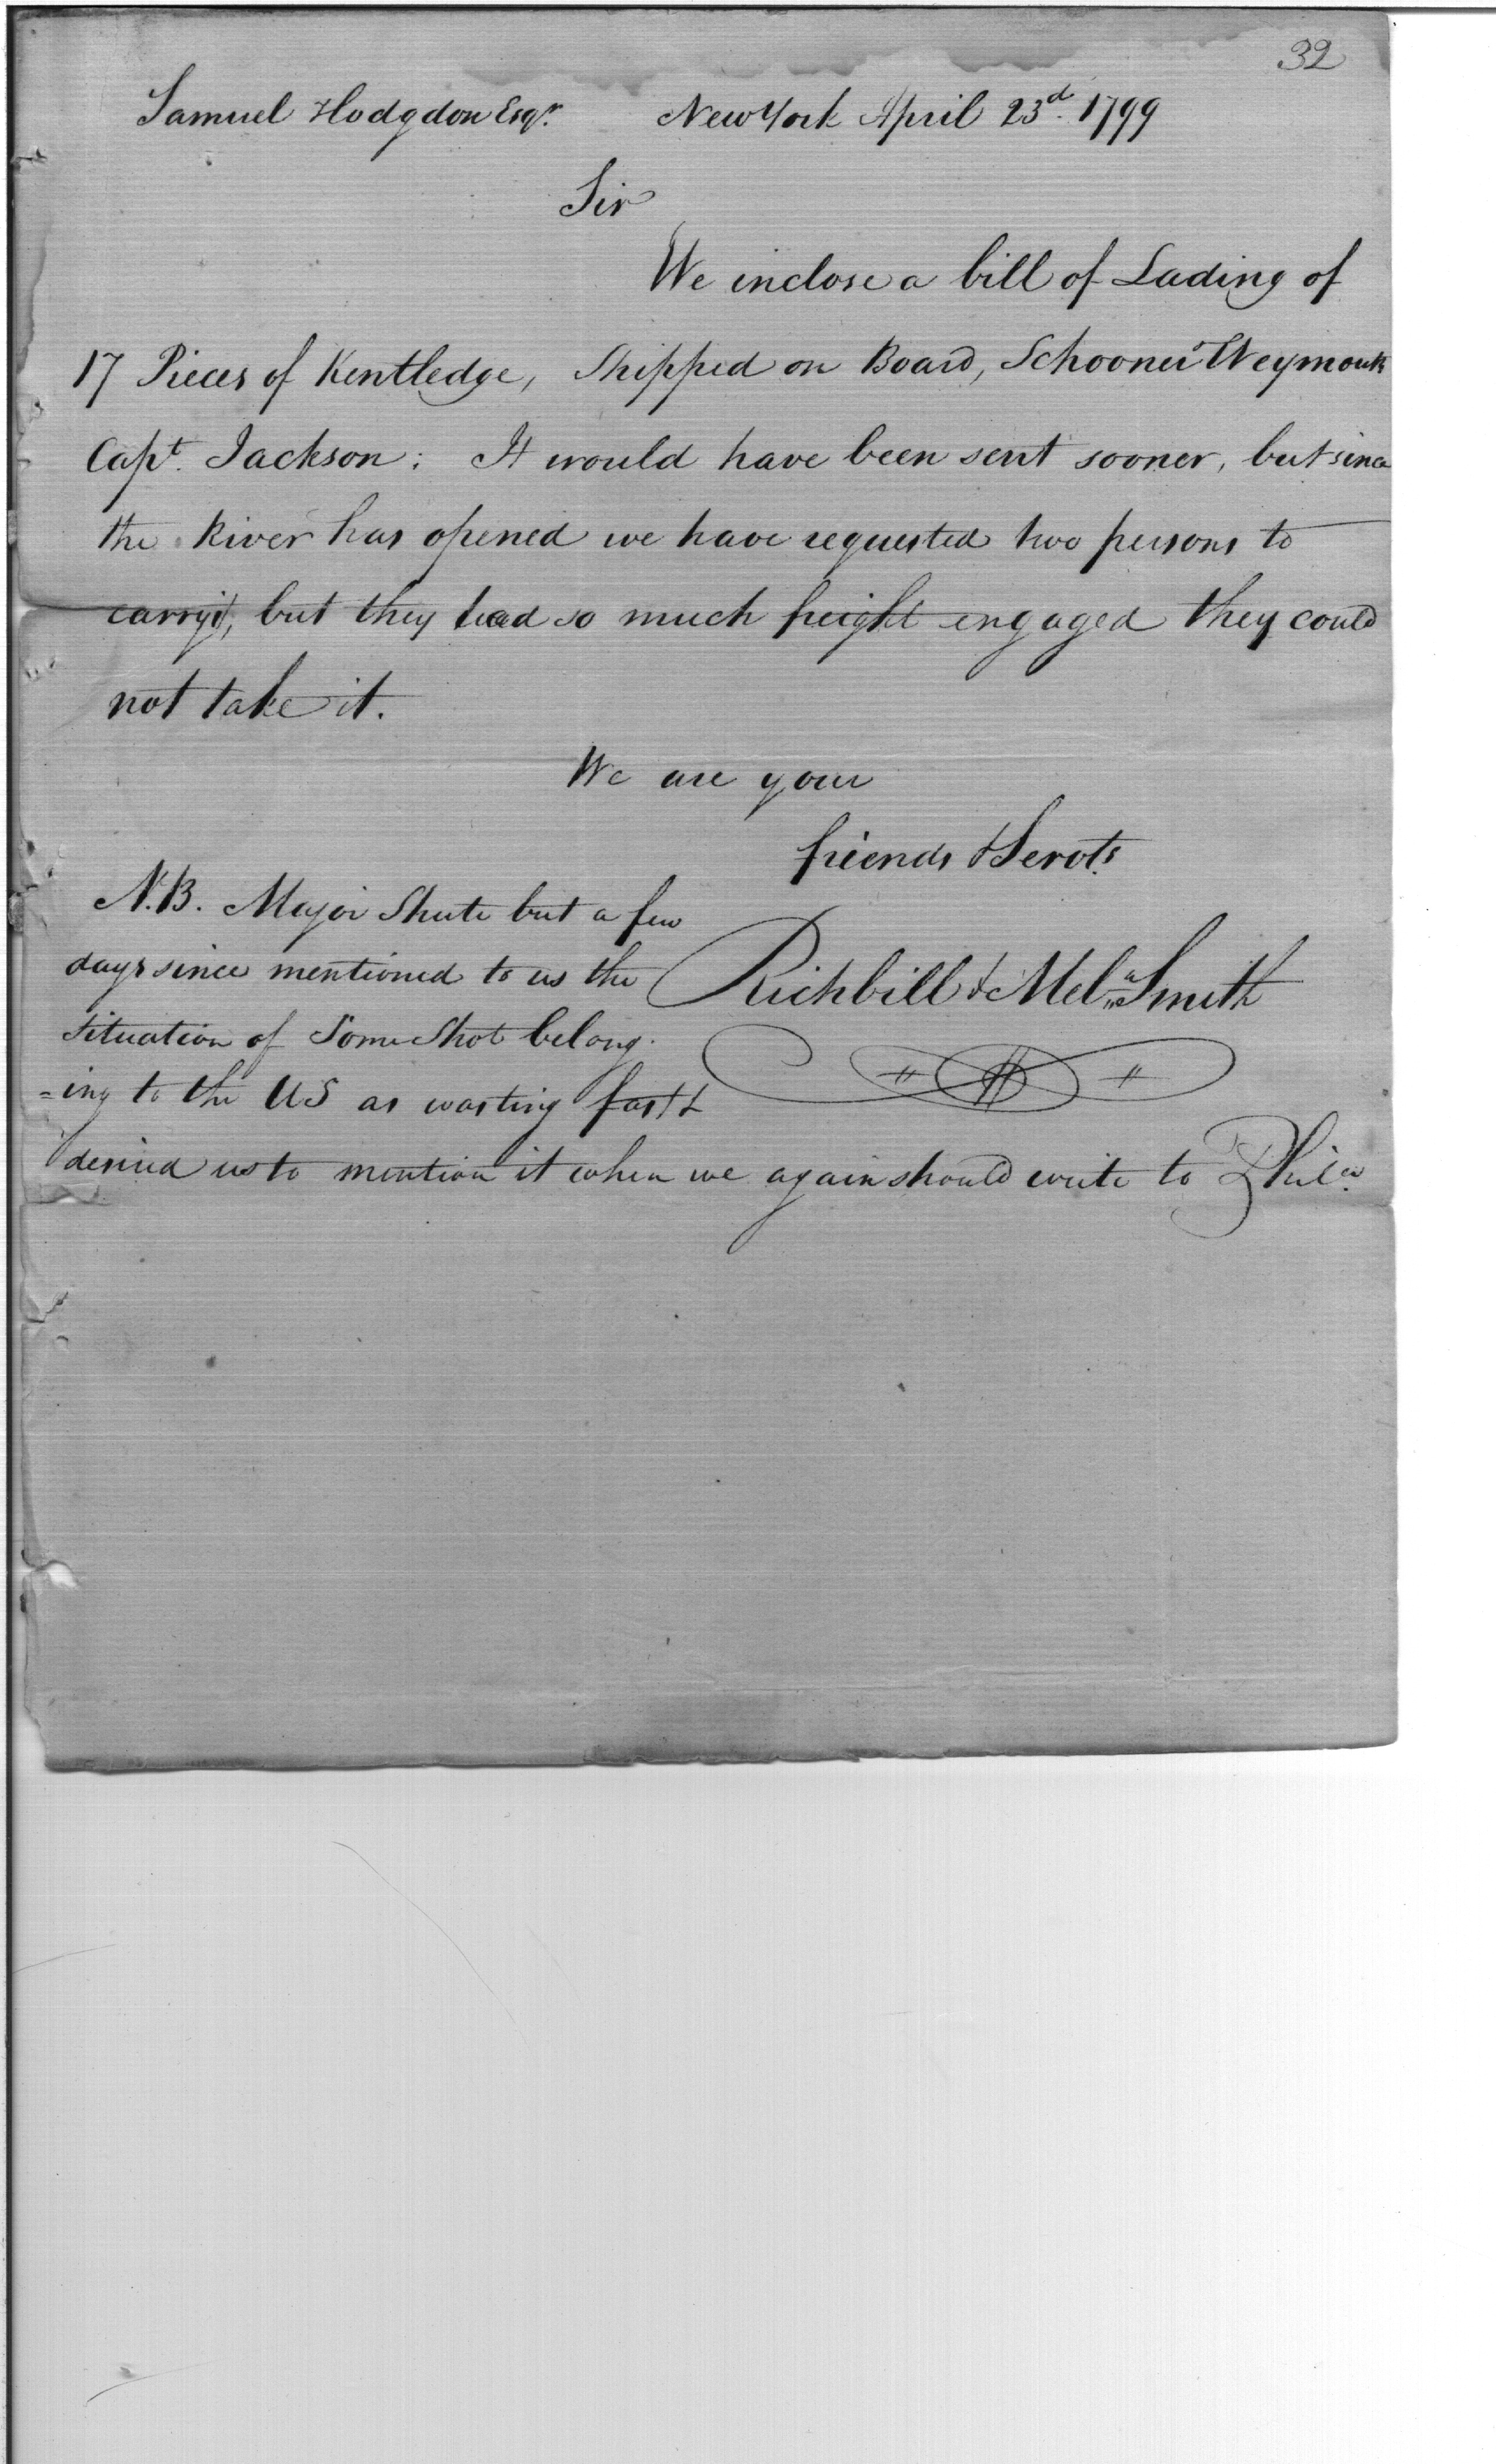 32
Samuel Hodgdon Esqr. New York April 23d. 1799
Sir
We inclose a bill of Lading of
17 Pieces of Kentledge, Shipped on Board, Schooner Weymouth
Capt. Jackson; It would have been sent sooner, but since
the River has opened we have requested two persons to
carry it, but they had so much freight engaged they could
not take it.
We are your
friends & Servts.
N.B. Major Shute but a few
days since mentioned to us the
Richbill & Mel Smith
situation of Some Shot belong-
=ing to the US as wasting fast &
desired us to mention it when we again should write to Phila.